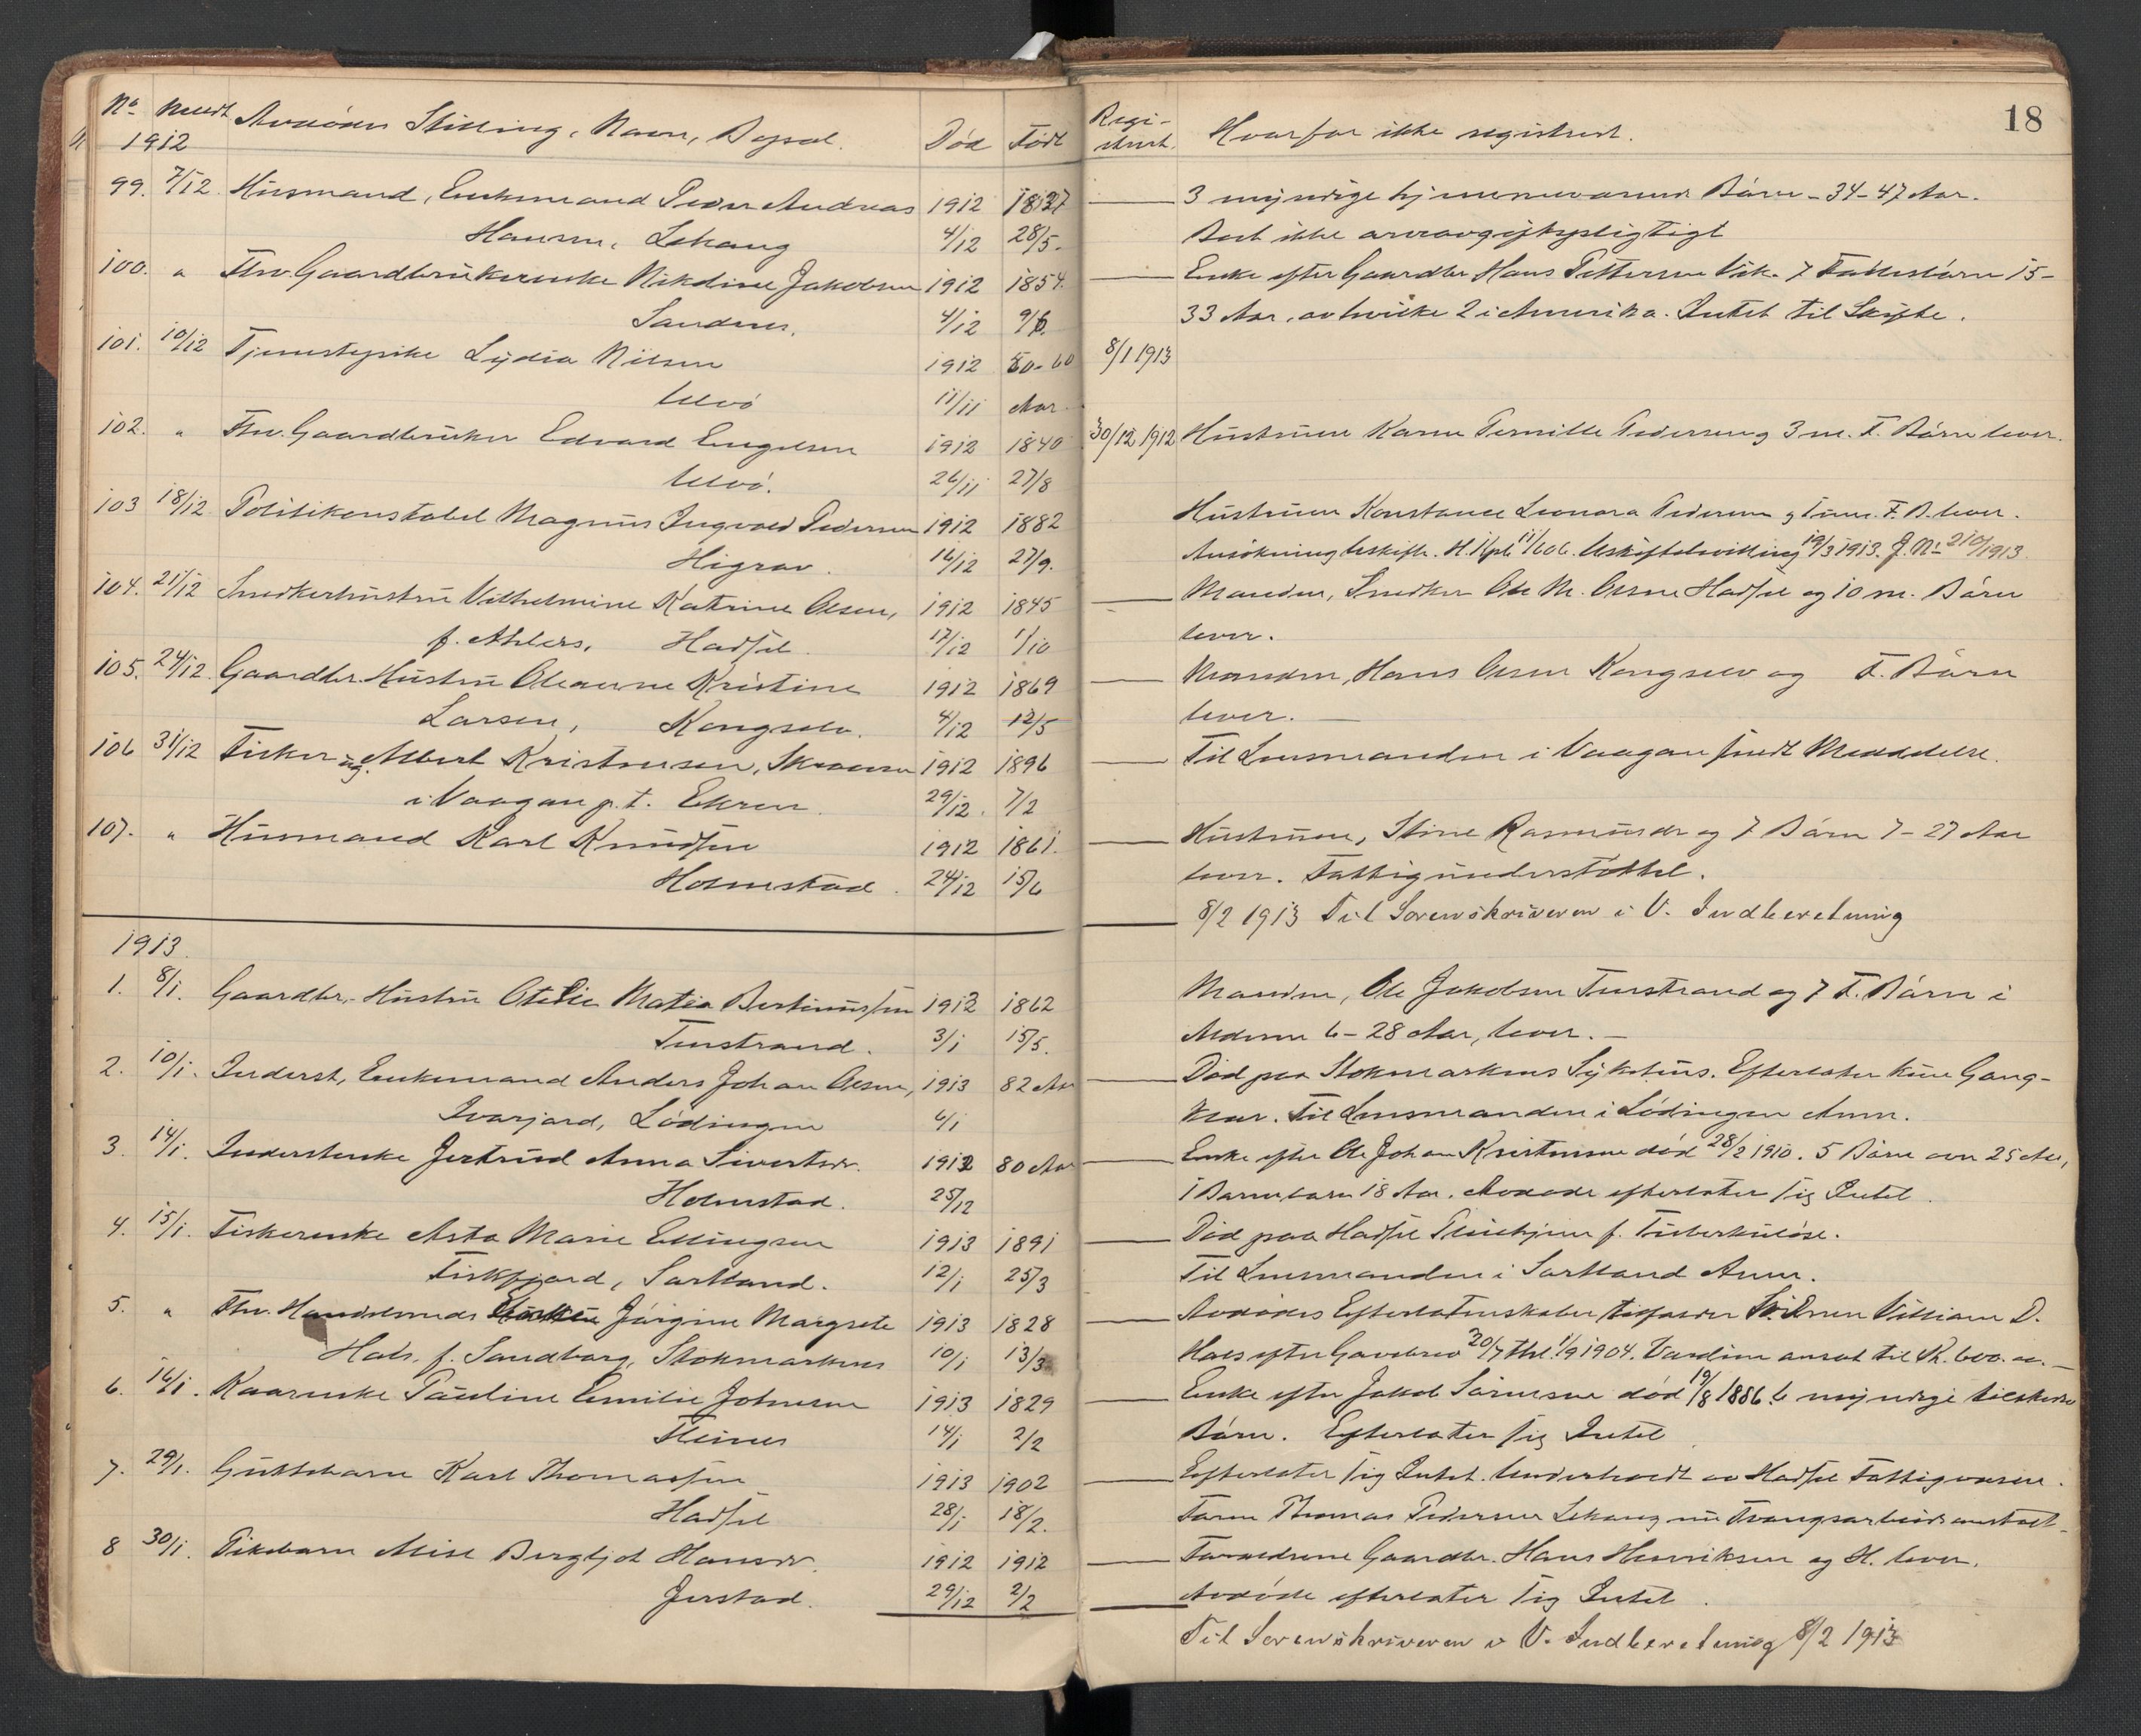 18
No. Meldt Avdödes Stilling, Navn, Bopæl. Död Födt Regi-
1912 strert. Hvorfor ikke registrert.
99. 7/12 Husmand, Enkemand Peder Andreas 1912 1837 3 myndige hjemmeværende Börn - 34-47 Aar.
Hansen, Lekang 4/12 28/5. Boet ikke arveavgiftspligtigt
100. " Fhv. Gaardbrukerenke Nikoline Jakobsen 1912 1854. Enke efter Gaardbr Hans Pettersen Vik. 7 Fællesbörn 15-
Sandnes. 4/12 9/6. 33 Aar, av hvilke 2 i Amerika. Intet til Skifte.
101. 10/12 Tjenestepike Lydia Nilsen 1912 50-60 8/1 1913
Ulvö 11/11 Aar
102. " Fhv. Gaardbruker Edvard Engelsen 1912 1840 30/12 1912 Hustruen Karen Pernille Pedersen og 3 m. F. Börn lever.
Ulvö. 26/11 27/8
103 18/12 Politikonstabel Magnus Ingvald Pedersen 1912 1882 Hustruen Konstance Leonora Pedersen og 1 um. F. B. lever.
Higrav. 16/12 27/9. Ansökning Uskifte. Uskiftebevilling 19/3 1913. J. No 210/1913.
104. 21/12 Snedkerhustru Vilhelmine Katrine Olsen, 1912 1845 Manden, Snedker Ole M. Olsen Hadsel og 10 m. Börn
f. Ahlers, Hadsel. 17/12 1/10 lever.
105. 24/12. Gaardbr. Hustru Oleanne Kristine 1912 1869 Manden, Hans Olsen Kongselv og F. Börn
Larsen, Kongselv. 4/12 12/5 lever.
106 31/12 Fisker ug. Albert Kristensen, Skraaven 1912 1896 Til Lensmanden i Vaagan sendt Meddelelse.
i Vaagan p.t. Ekren 29/12. 7/2
107. " Husmand Karl Knudsen 1912 1861. Hustruen, Stine Rasmusdr og 7 Börn 7-27 Aar
Holmstad. 24/12 15/6 lever. Fattigunderstöttet.
8/2 1913 Til Sorenskriveren i V. Indberetning
1913.
1. 8/1. Gaardbr.-Hustru Otelie Matea Bertinussen 1912 1862 Manden, Ole Jakobsen Tenstrand og 7 F. Börn i
Tenstrand. 3/1 15/5. Alderen 6-28 Aar, lever.
2. 10/1. Inderst, Enkemand Anders Johan Olsen, 1913 82 Aar Död paa Stokmarknes Sykehus. Efterlater kun Gang-
Ivarjord, Lödingen 6/1 klær. Til Lensmanden i Lödingen Anm.
3. 14/1. Inderstenke Jertrud Anna Sivertsdr. 1912 80 Aar Enke efter Ole Johan Kristensen död 28/2 1910. 5 Börn over 25 Aar,
Holmstad. 25/12 1 Barnebarn 18 Aar. Avdöde efterlater sig Intet.
4. 15/1. Fiskerenke Asta Marie Ellingsen 1913 1891 Död paa Hadsel Pleiehjem f. Tuberkulöse.
Fiskfjord, Sortland. 12/1 25/3 Til Lensmanden i Sortland Anm.
5. " Fhv. Handelsmands Enke Jörgine Margrete 1913 1828 Avdödes Efterlatenskaber tilfalder Sönnen Villiam D.
Hals, f. Sandborg, Stokmarknes 10/1 13/3 Hals efter Gavebrev 20/7 thl. 1/9 1904. Værdien ansat til Kr. 600.00.
6. 16/1. Kaarenke Pauline Emilie Johnsen 1913 1829 Enke efter Jakob Sörensen död 19/8 1886. 6 myndige tilstede
Steines 14/1 2/2 Börn. Efterlater sig Intet
7. 29/1. Guttebarn Karl Thomassen 1913 1902 Efterlater sig Intet. Underholdt av Hadsel Fattigvæsen.
Hadsel 28/1 18/2. Faren Thomas Pedersen Lekang nu Tvangsarbeidsanstalt.
8 30/1. Pikebarn Alise Bergljot Hansdr. 1912 1912 Forældrene Gaardbr. Hans Henriksen og H. lever.
Jerstad. 29/12 2/2 Avdöde efterlater sig Intet.
Til Sorenskriveren i V. Indberetning 8/2 1913